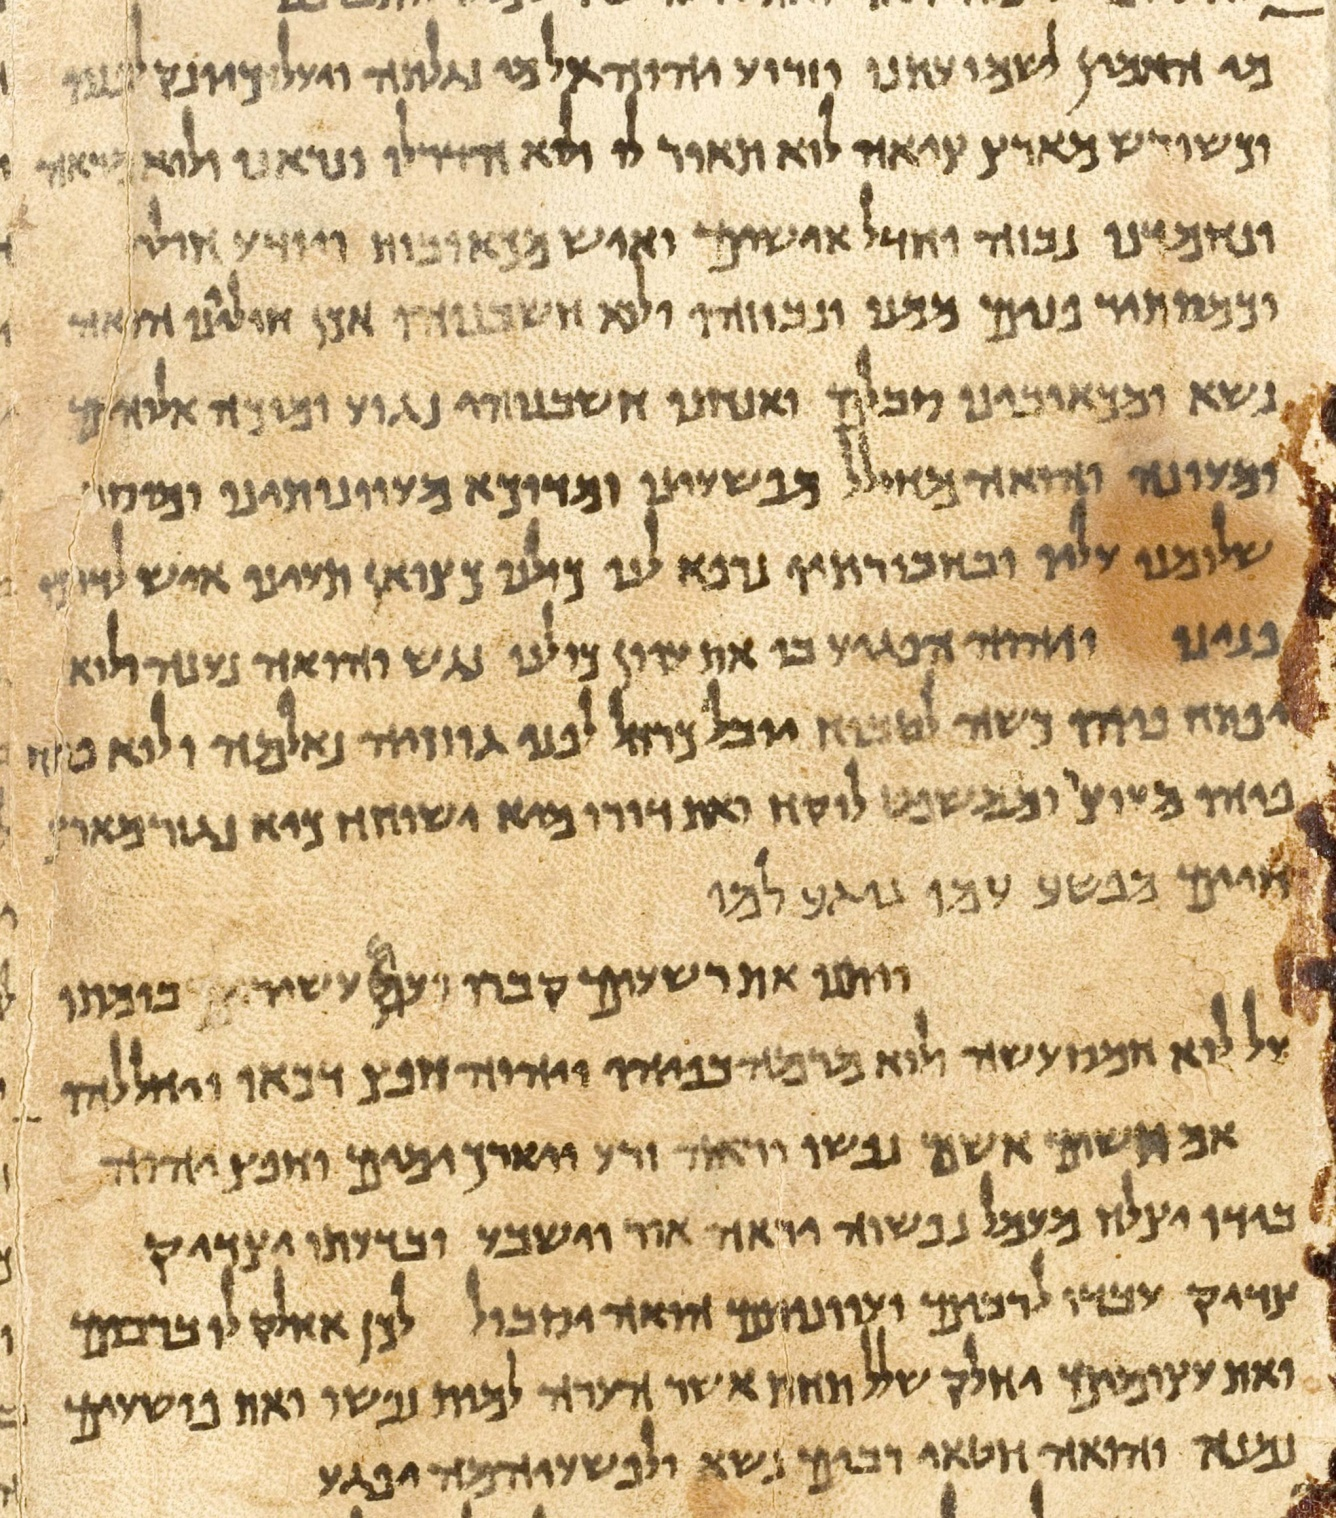 מי האמין לשמועתנו וזרוע יהוה אל מי נגלתה ויעל כיונק לפניו
וכשורש מארץ ציאה לוא תאור לו ולא הדר לו ונראנו ולוא מראה
ונחמדנו נבוזה וחדל אישים ואיש מכאובות ויודע חולי
וכמסתיר פנים ממנו ונבוזהו ולוא חשבנוהו אכן חולייניו הואה
נשא ומכאובינו סבלם ואנחנו חשבנוהו נגוע ומוכה אלוהים
ומעונה והואה מחולל מפשעינו ומדוכא מעוונותינו ומוסר
שלומנו עליו ובחבורתיו נרפא לנו כולנו כצואן תעינו איש לדרכו
פנינו ויהוה הפגיע בו את עוון כולנו נגש והואה נענה ולוא
יפתח פיהו כשה לטבוח יובל כרחל לפני גוזזיה נאלמה ולוא פתח
פיהו מעוצר וממשפט לוקח ואת דורו מיא ישוחח כיא נגזר מארץ
חיים מפשע עמו נוגע למו
ויתנו את רשעים קברו ועם עשירים בומתו
על לוא חמס עשה ולוא מרמה בפיהו ויהוה חפץ דכאו ויחללהו
אם תשים אשם נפשו יראה זרע ויארך ימים וחפץ יהוה
בידו יצלח מעמל נפשוה יראה אור וישבע ובדעתו יצדיק
צדיק עבדו לרבים ועוונותם הואה יסבול לכן אחלק לו ברבים
ואת עצומים יחלק שלל תחת אשר הערה למות נפשו ואת פושעים
נמנא והואה חטאי רבים נשא ולפשעיהמה יפגע